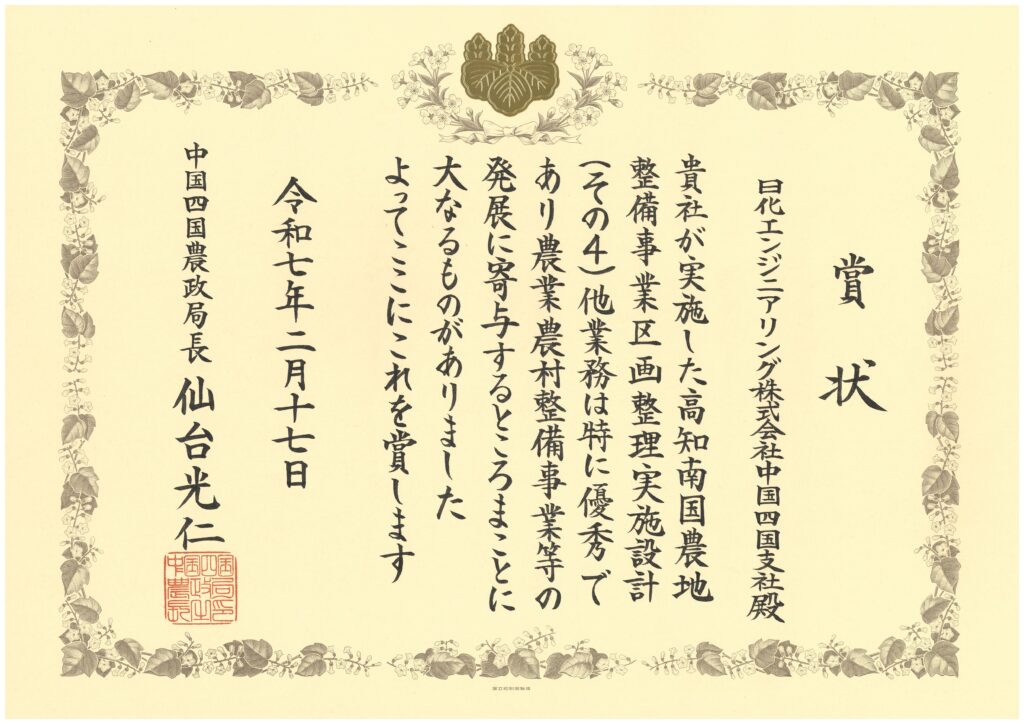 賞状
日化エンジニアリング株式会社中国四国支社殿
貴社が実施した高知南国農地
整備事業区画整理実施設計
（その４）他業務は特に優秀で
あり農業農村整備事業等の
発展に寄与するところまことに
大なるものがありました
よってここにこれを賞します
令和七年二月十七日
中国四国農政局長　仙台光仁